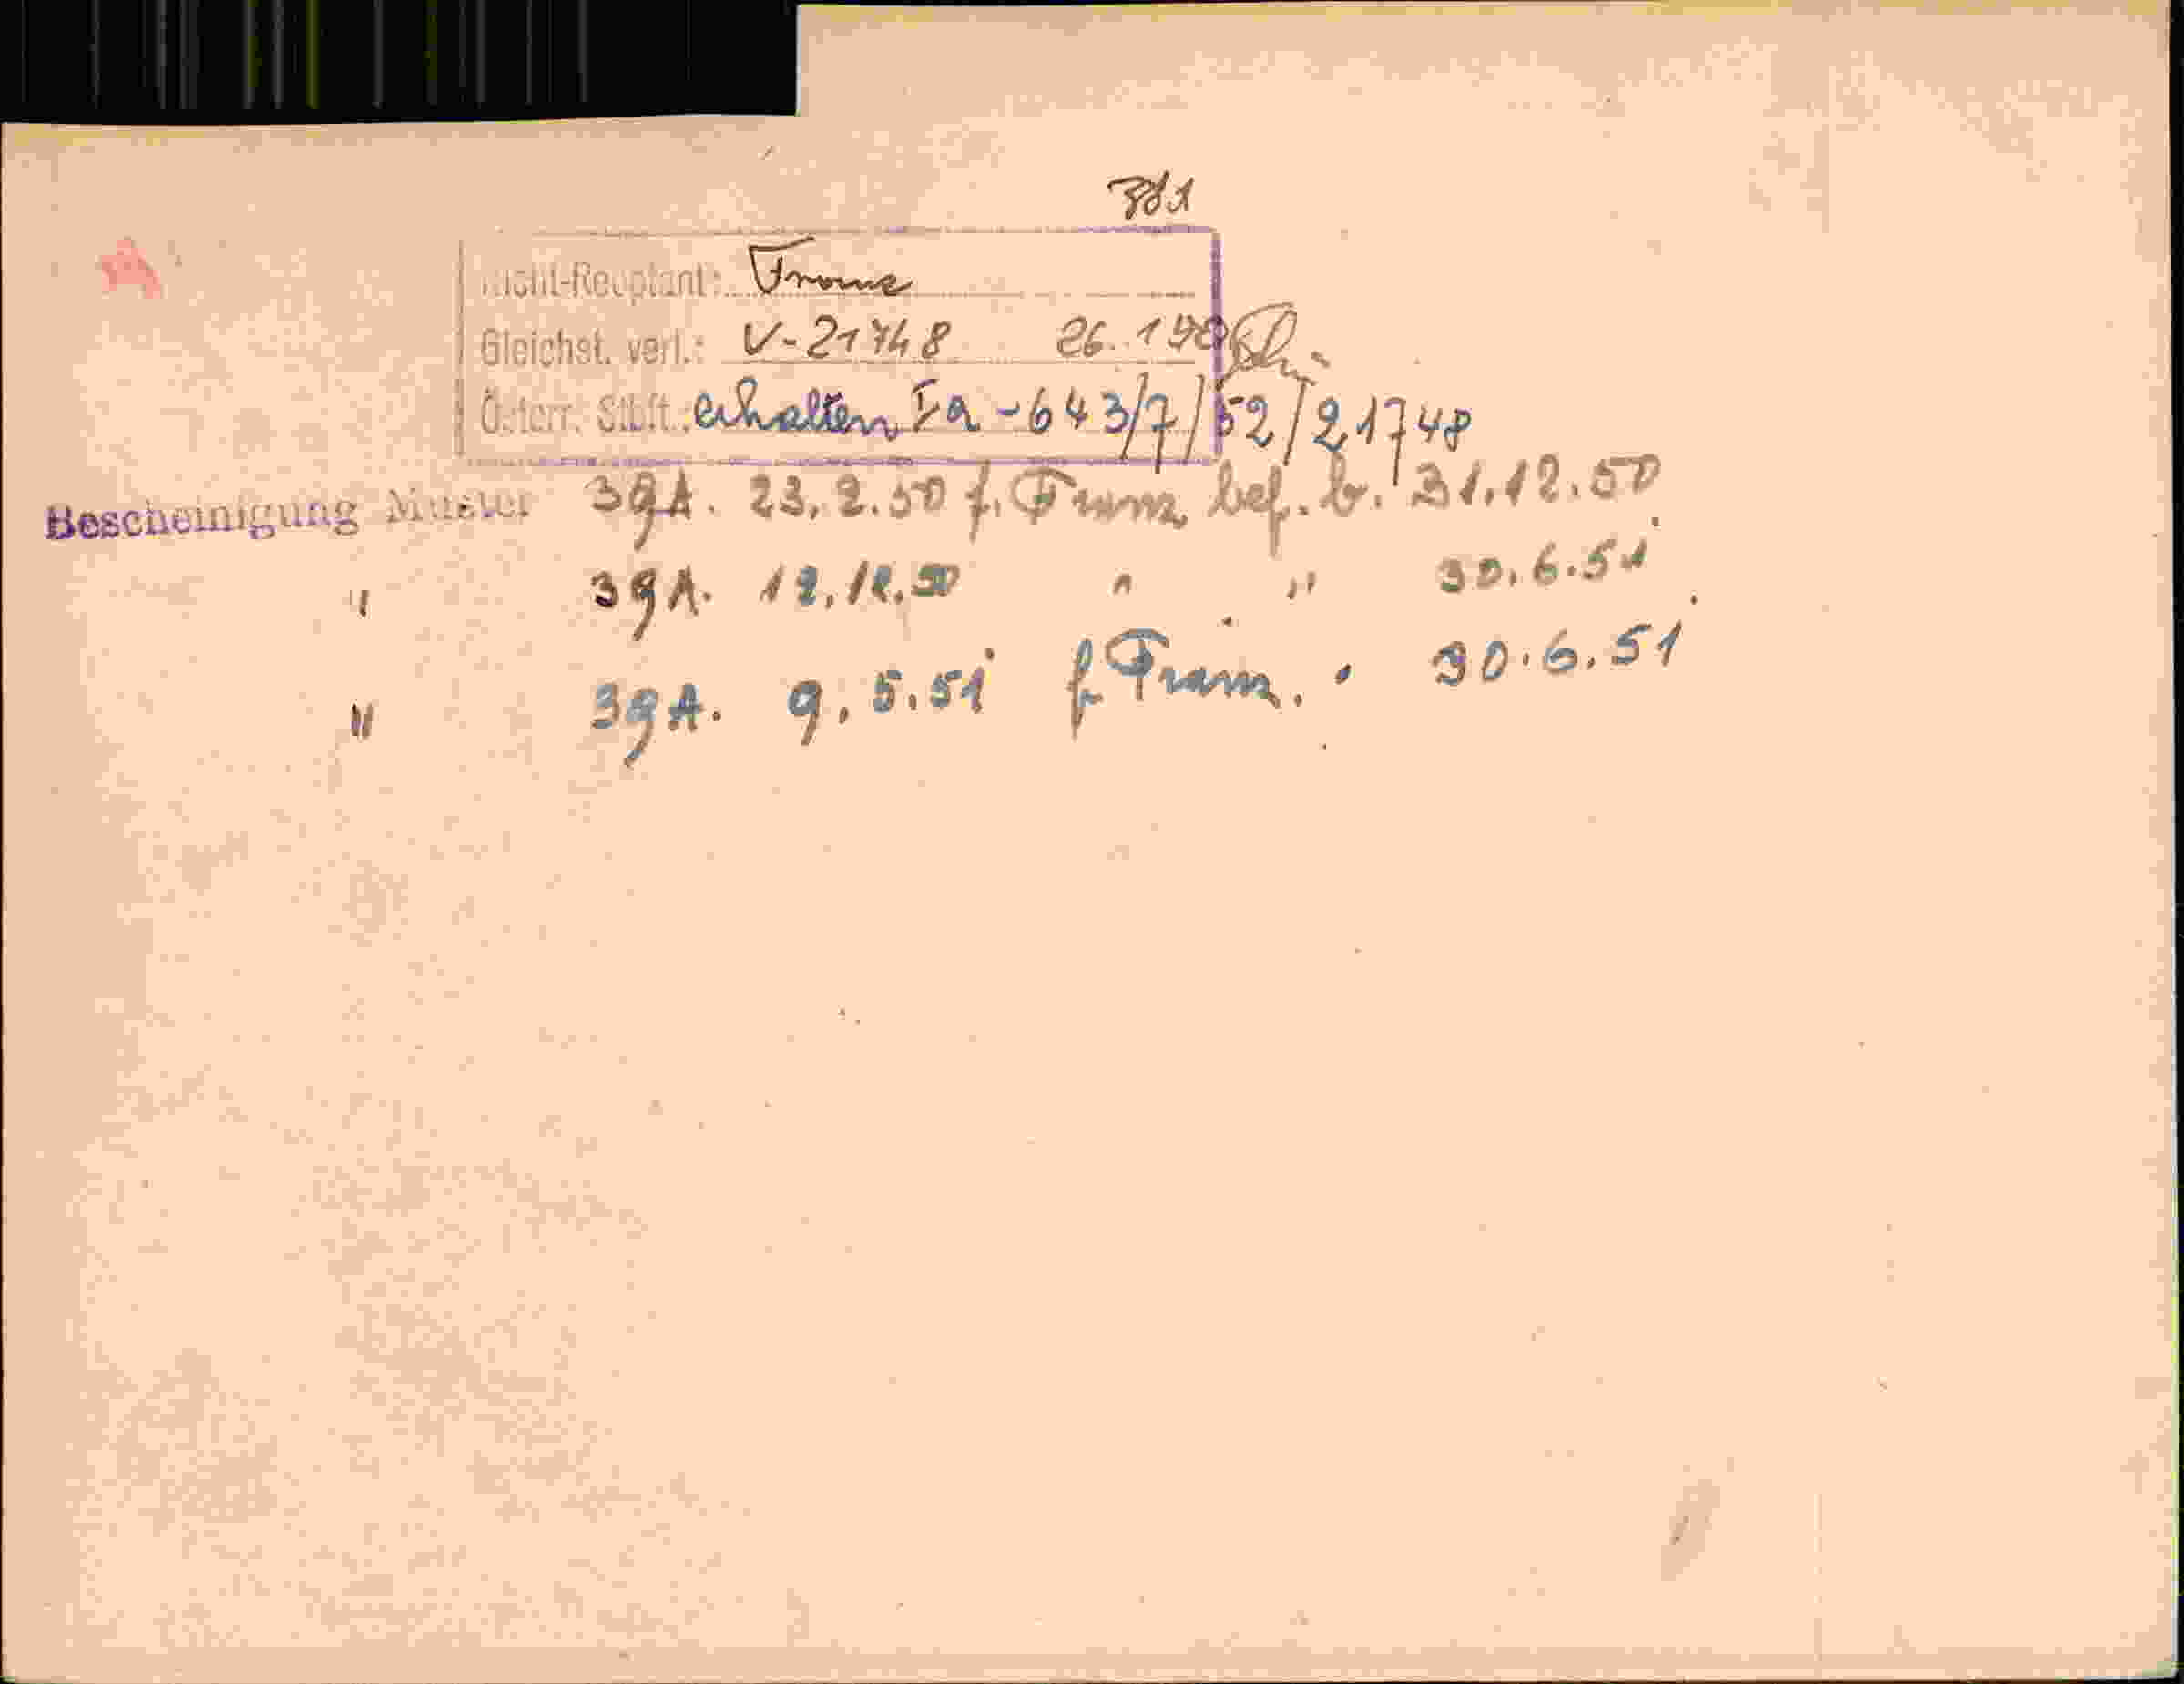 Nicht-Reoptant:
Gleichst. verl.: V-21748 26.
Österr. Stbft.: erhalten Ia -643/7/52/21748
Bescheinigung Muster 3gA. 23.2.50 f. bef. b. 31.12.50
" 3gA. 12.12.50 " " 30.6.51
" 3gA. 9.5.51 f. 30.6.51